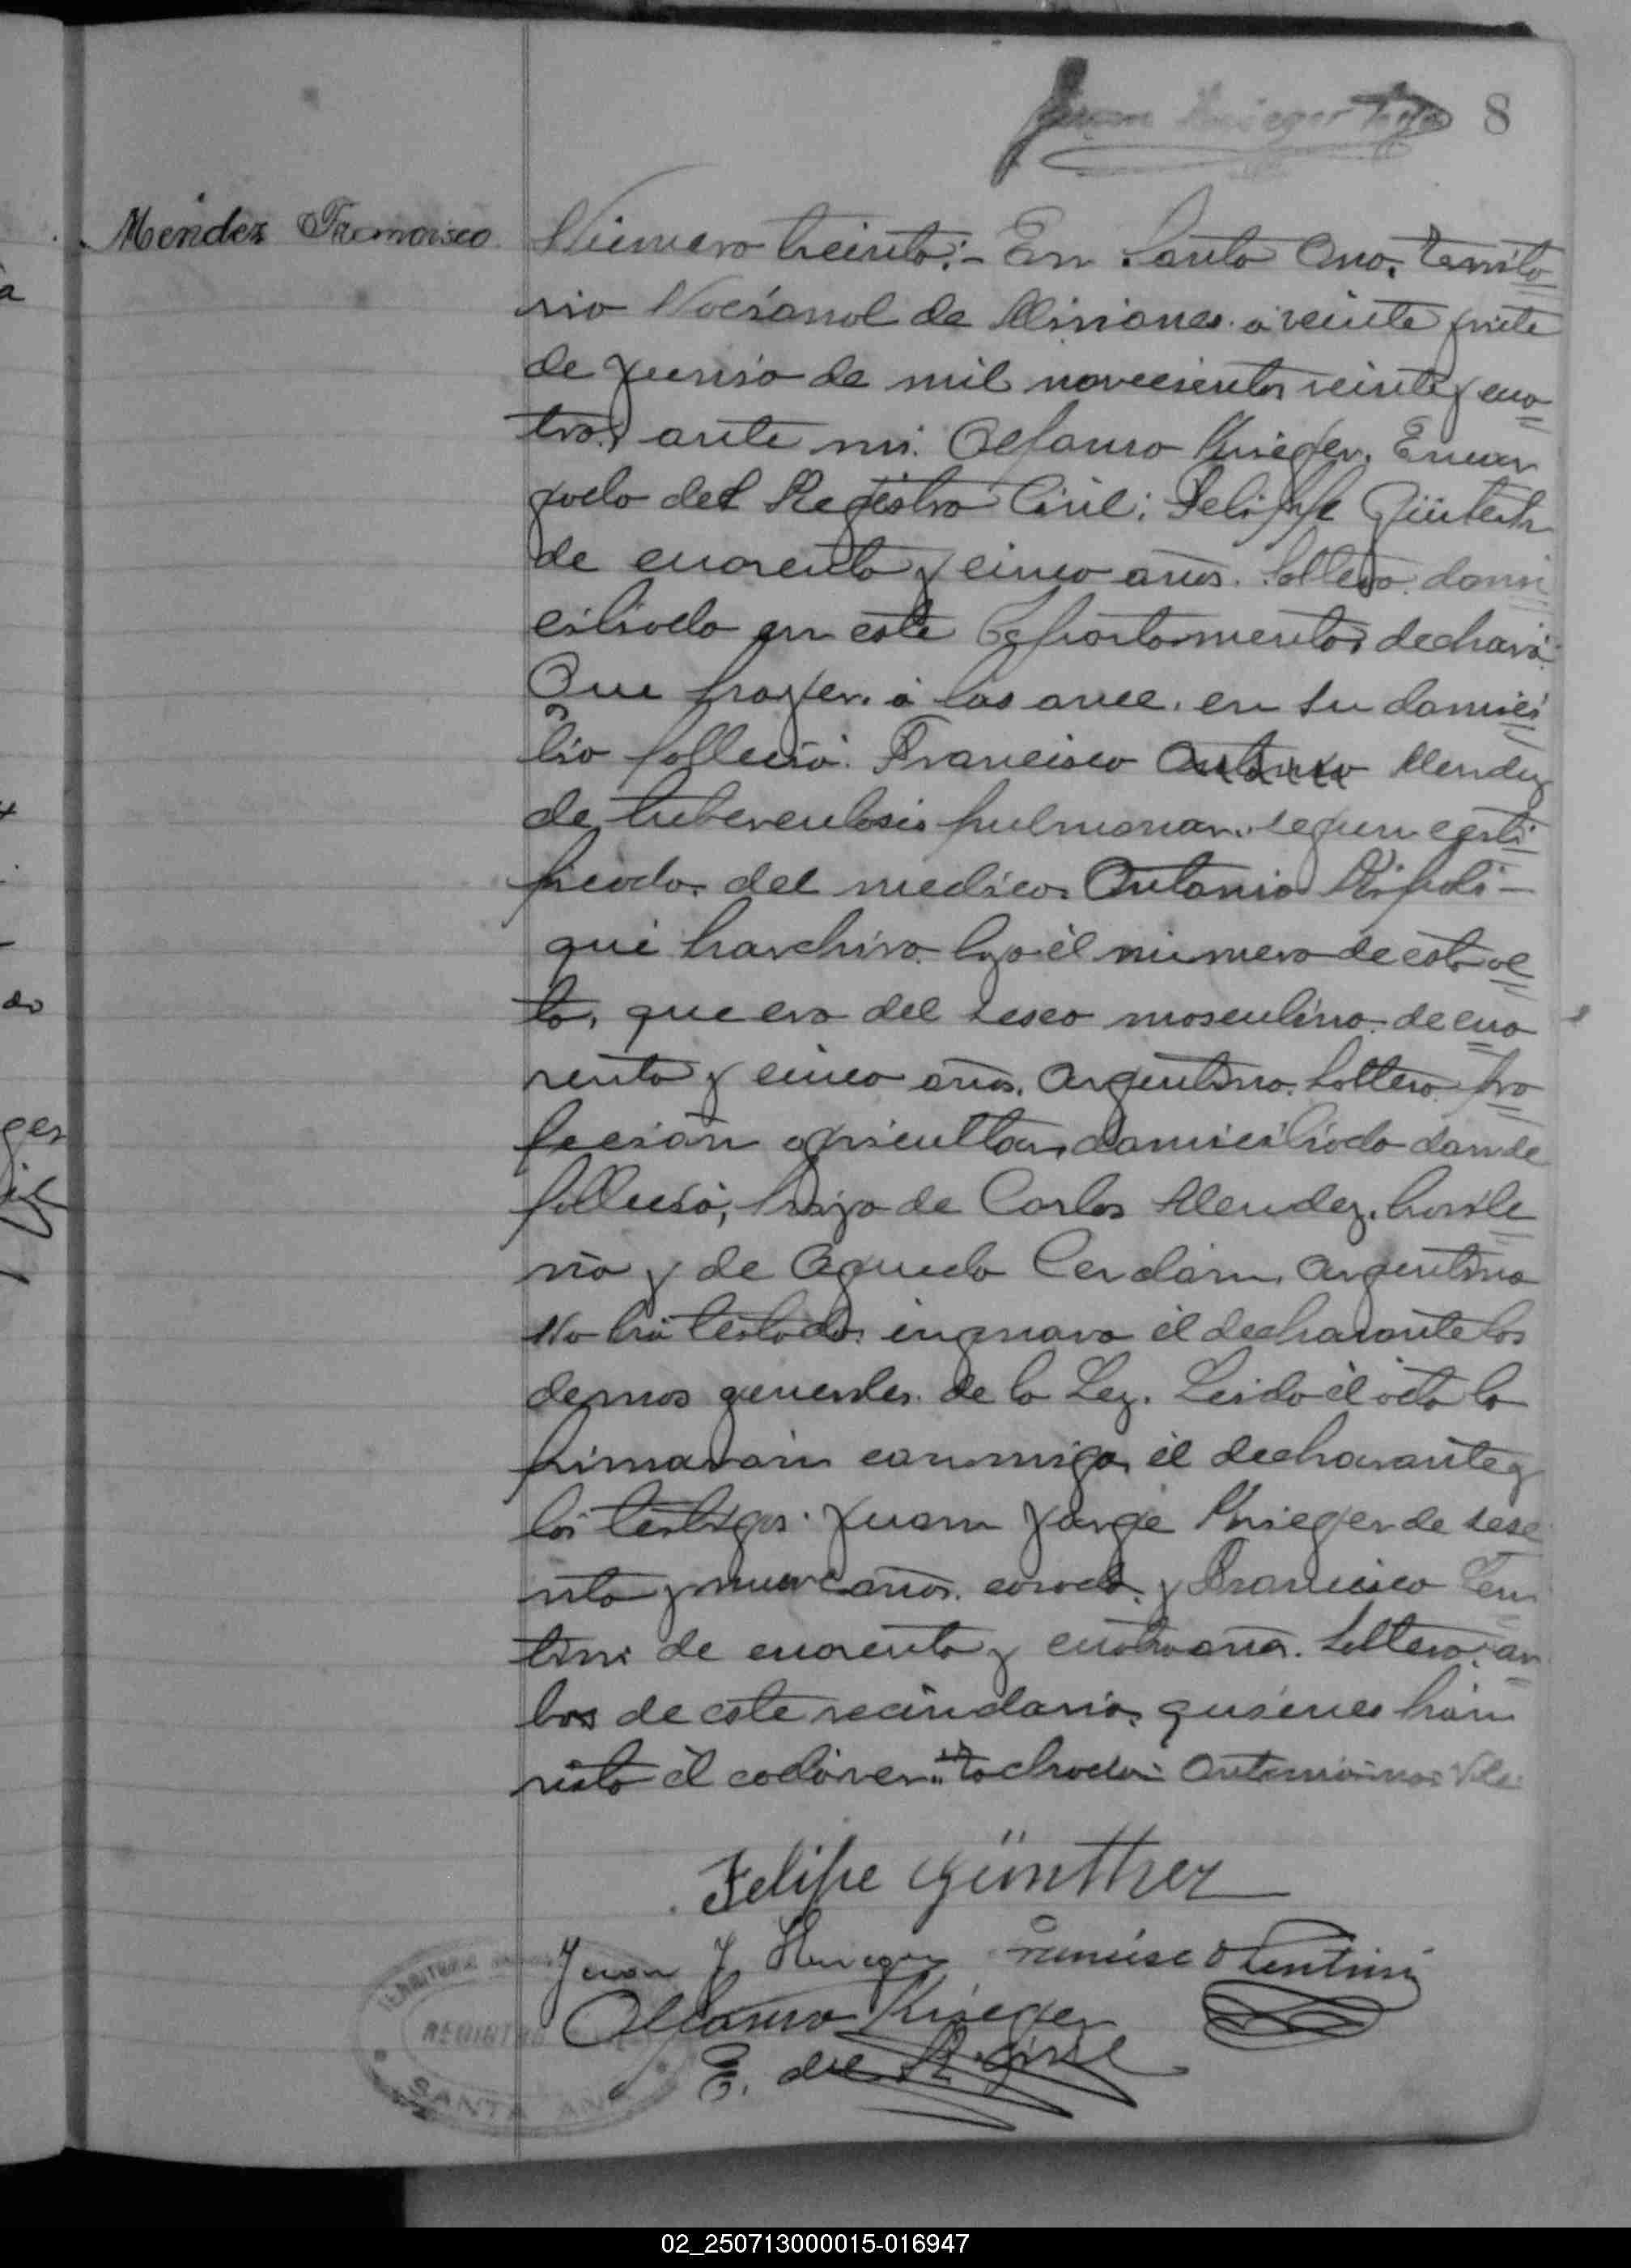 Juan Krieger 8
Mendez Francisco
Número treinta:- En Santa Ana, territo
rio Nacional de Misiones a veinte y siete
de Junio de mil novecientos veinte y cua
tro, ante mi. Alfonso Krieger, Encar
gado del Registro Civil; Felippe Günterth
de cuarenta y cinco años. Soltero. domi
ciliado en este Departamento, declaró.
Que hayer. a las once. en su domici
lio falleció. Francisco Antonio Mendez
de tuberculosis pulmonar. segun certi
ficado. del medico. Antonio
que harchivo bajo él número de esta ac
ta, que era del secso masculino. de cua
renta y cinco años. Argentino. Soltero. pro
fecion agricultor, domiciliado donde
falleció, hijo de Carlos Mendez. brasile
ño y de Agueda Cerdan. Argentina
No há testado. ingnora él declarante los
demas generales. de la Ley. Leida él acta la
firmaron conmigo, él declarante y
los testigos. Juan Jorge Krieger de sese
nta y nueve años. casado. y Francisco Ten
tini de cuarenta y cuatro años. Soltero. am
bos de este vecindario, quienes hán
visto él cadáver. "tachado: Antonio: no: Vale:
Felipe Günther
Juan J Krieger Francisco Tentini
Alfonso Krieger
E. del R. Civil
TERRITORIO
REGISTRO
SANTA ANA
02_250713000015-016947